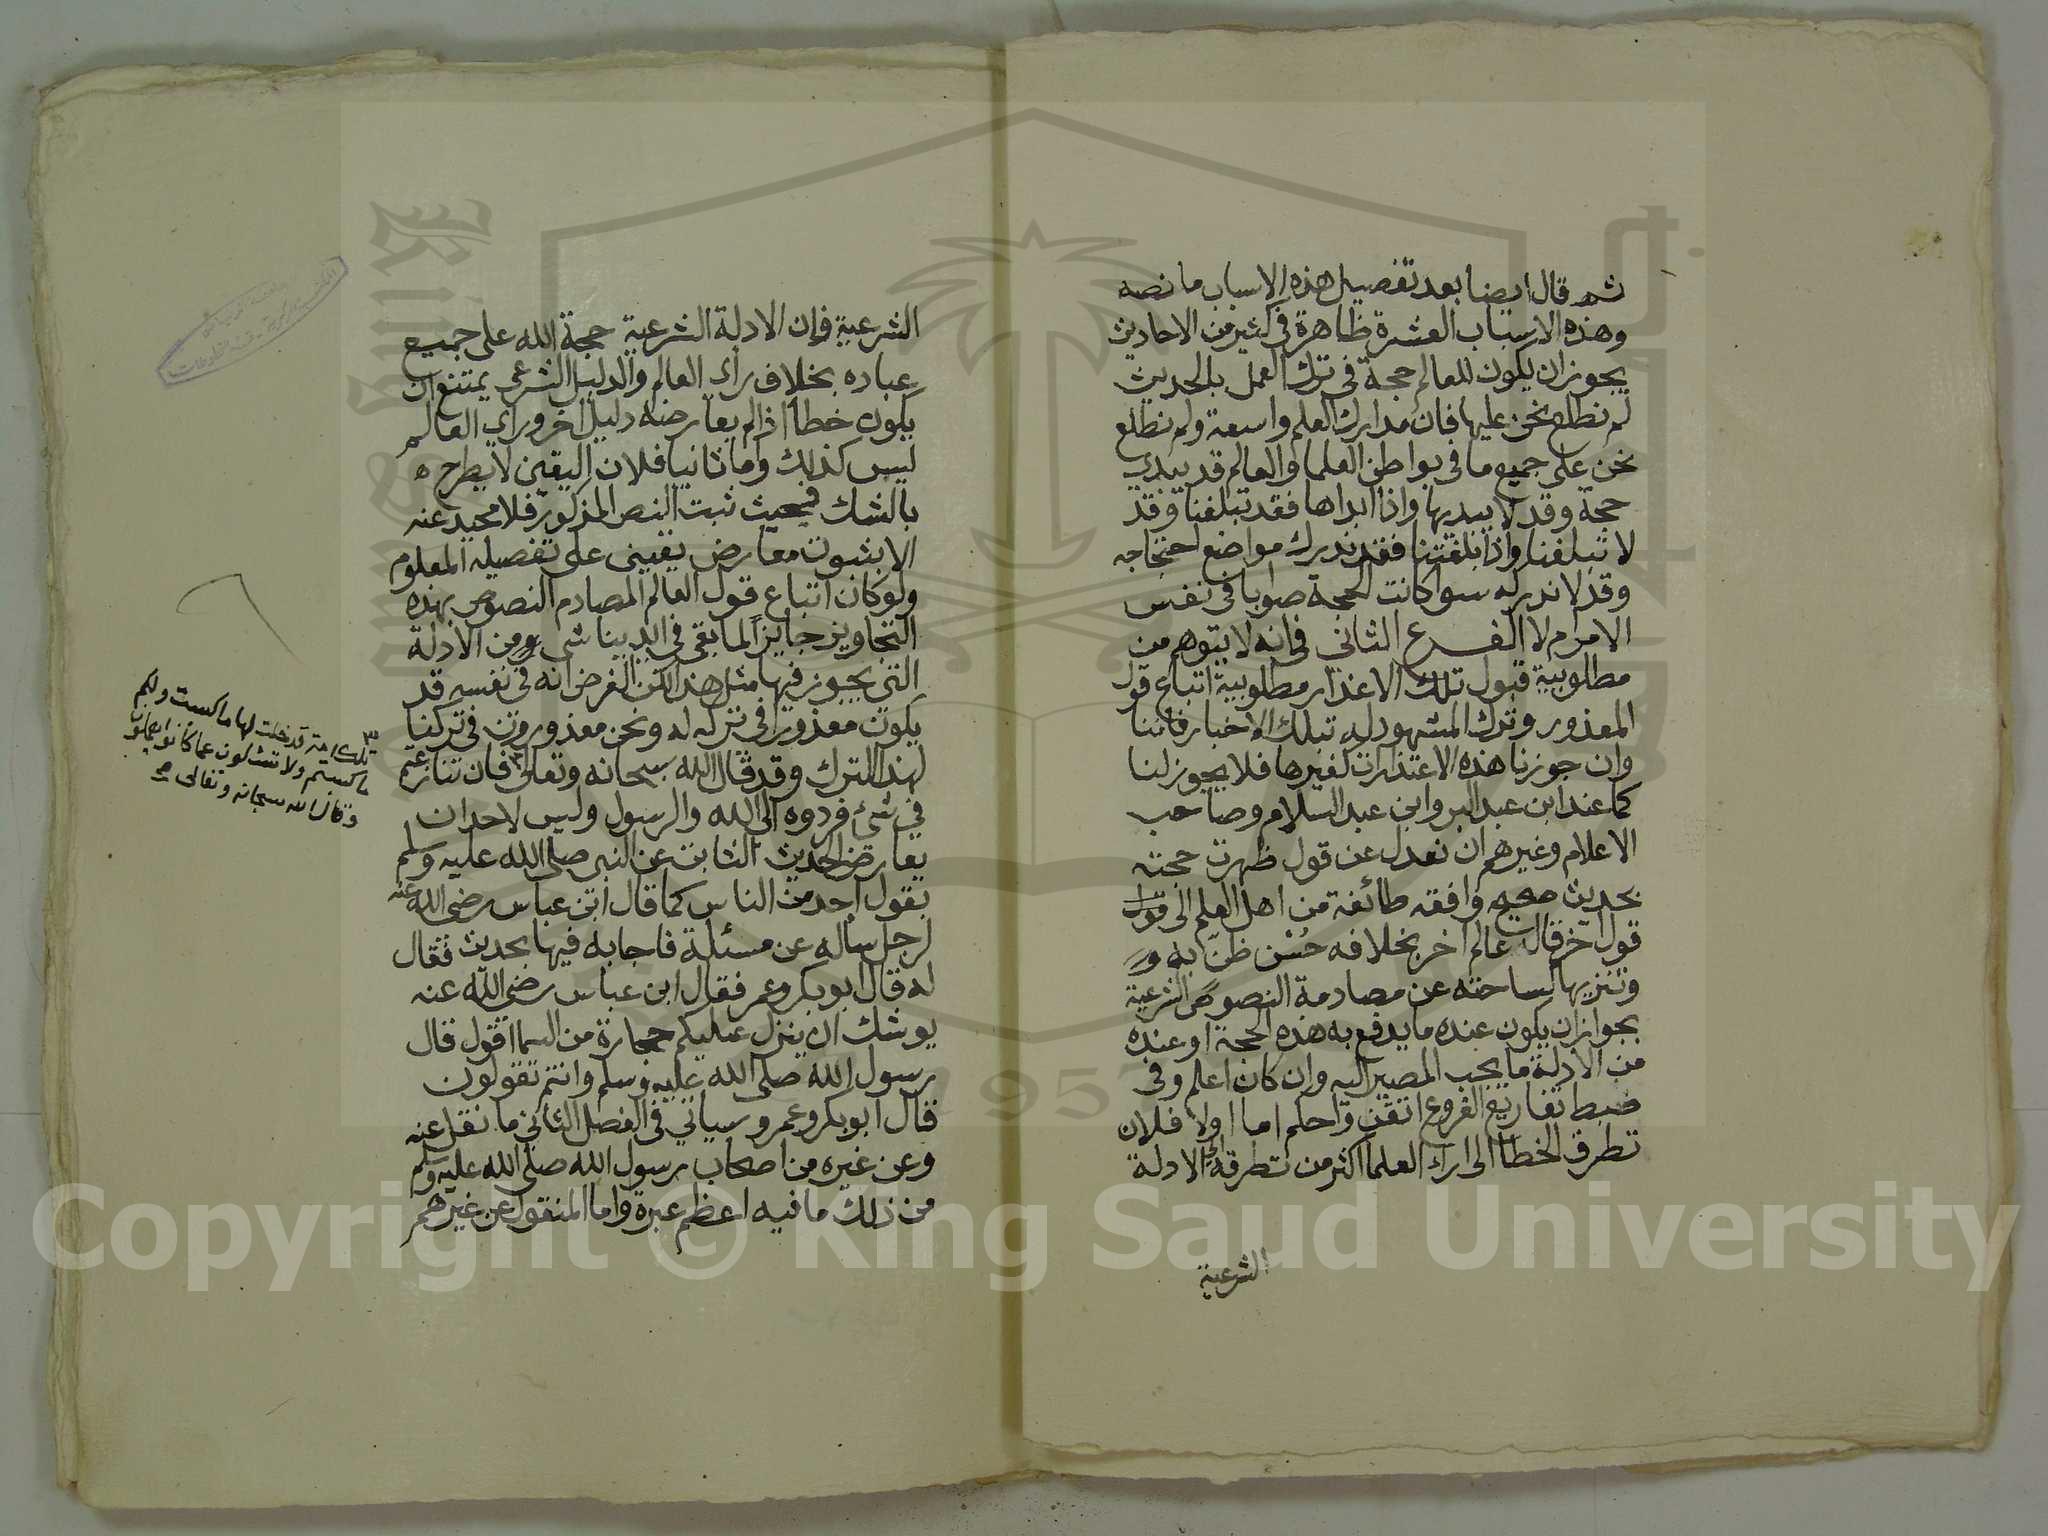 ثم قال ايضا بعد تفصيل هذه الاسباب ما نصه
وهذه الاسباب العشرة ظاهرة في كثير من الاحاديث
يجوز ان يكون للعالم حجة في ترك العمل بالحديث
لم نطلع نحن عليها فان مدارك العلم واسعة ولم نطلع
نحن على جميع ما في بواطن العلما والعالم قد يبدي
حجة وقد لا يبديها واذا ابداها فقد تبلغنا وقد
لا تبلغنا واذا بلغتنا فقد ندرك مواضع احتجاجه
وقد لا ندركه سوا كانت الحجة صوابا في نفس
الامر ام لا الفرع الثاني في انه لا يتوهم من
مطلوبية قبول تلك الاعذار مطلوبية اتباع قول
المعذور وترك المشهود له بتلك الاخبار فاننا
وان جوزنا هذه الاعتذارات لغيرها فلا يجوز لنا
كما عند ابن عبد البر وابن عبد السلام وصاحب
الاعلام وغيرهم ان نعدل عن قول ظهرت حجته
بحديث صحيح وافقه طائفة من اهل العلم الى قول
قول اخر قاله عالم اخر بخلافه حُسْن ظنّ به و
وتنزيها لساحته عن مصادمة النصوص الشرعية
بجواز ان يكون عنده ما يدفع به هذه الحجة او عنده
من الادلة ما يجب المصير اليه وان كان اعلم وفي
ضبط تفاريع الفروع اتقن واحكم اما اولا فلان
تطرق الخطا الى اراء العلما اكثر من تطرقه الى الادلة
الشرعية
الشرعية فان الادلة الشرعية حجة الله على جميع
عباده بخلاف رأي العالم والدليل الشرعي يمتنع ان
يكون خطأ اذا لم يعارضه دليل اخر ورأي العالم
ليس كذلك واما ثانيا فلان اليقين لا يطرح
بالشك فحيث ثبت النص المذكور فلا محيد عنه
الا بثبوت معارض يقيني على تفصيله المعلوم
ولو كان اتباع قول العالم المصادم النصوص بهذه
التجاويز جايزا لما بقي في ايدينا شيء من الادلة
التي يجوز فيها مثل هذا لكن الغرض انه في نفسه قد
يكون معذورا في تركه له ونحن معذورون في تركنا
لهذا الترك وقد قال الله سبحانه وتعالى فان تنازعتم
في شيء فردوه الى الله والرسول وليس لاحد ان
يعارض الحديث الثابت عن النبي صلى الله عليه وسلم
بقول احد من الناس كما قال ابن عباس رضي الله عنه
لرجل ساله عن مسئلة فاجابه فيها بحديث فقال
له قال ابو بكر وعمر فقال ابن عباس رضي الله عنه
يوشك ان ينزل عليكم حجارة من السما اقول قال
رسول الله صلى الله عليه وسلم وانتم تقولون
قال ابو بكر وعمر وسياتي في الفصل الثاني ما نقل عنه
وعن غيره من اصحاب رسول الله صلى الله عليه وسلم
من ذلك ما فيه اعظم عبرة واما المنقول عن غيرهم
تلك امة قد خلت لها ما كسبت ولكم
ما كسبتم ولا تسئلون عما كانوا يعملون
وقال الله سبحانه وتعالى صح
Copyright © King Saud University
1957